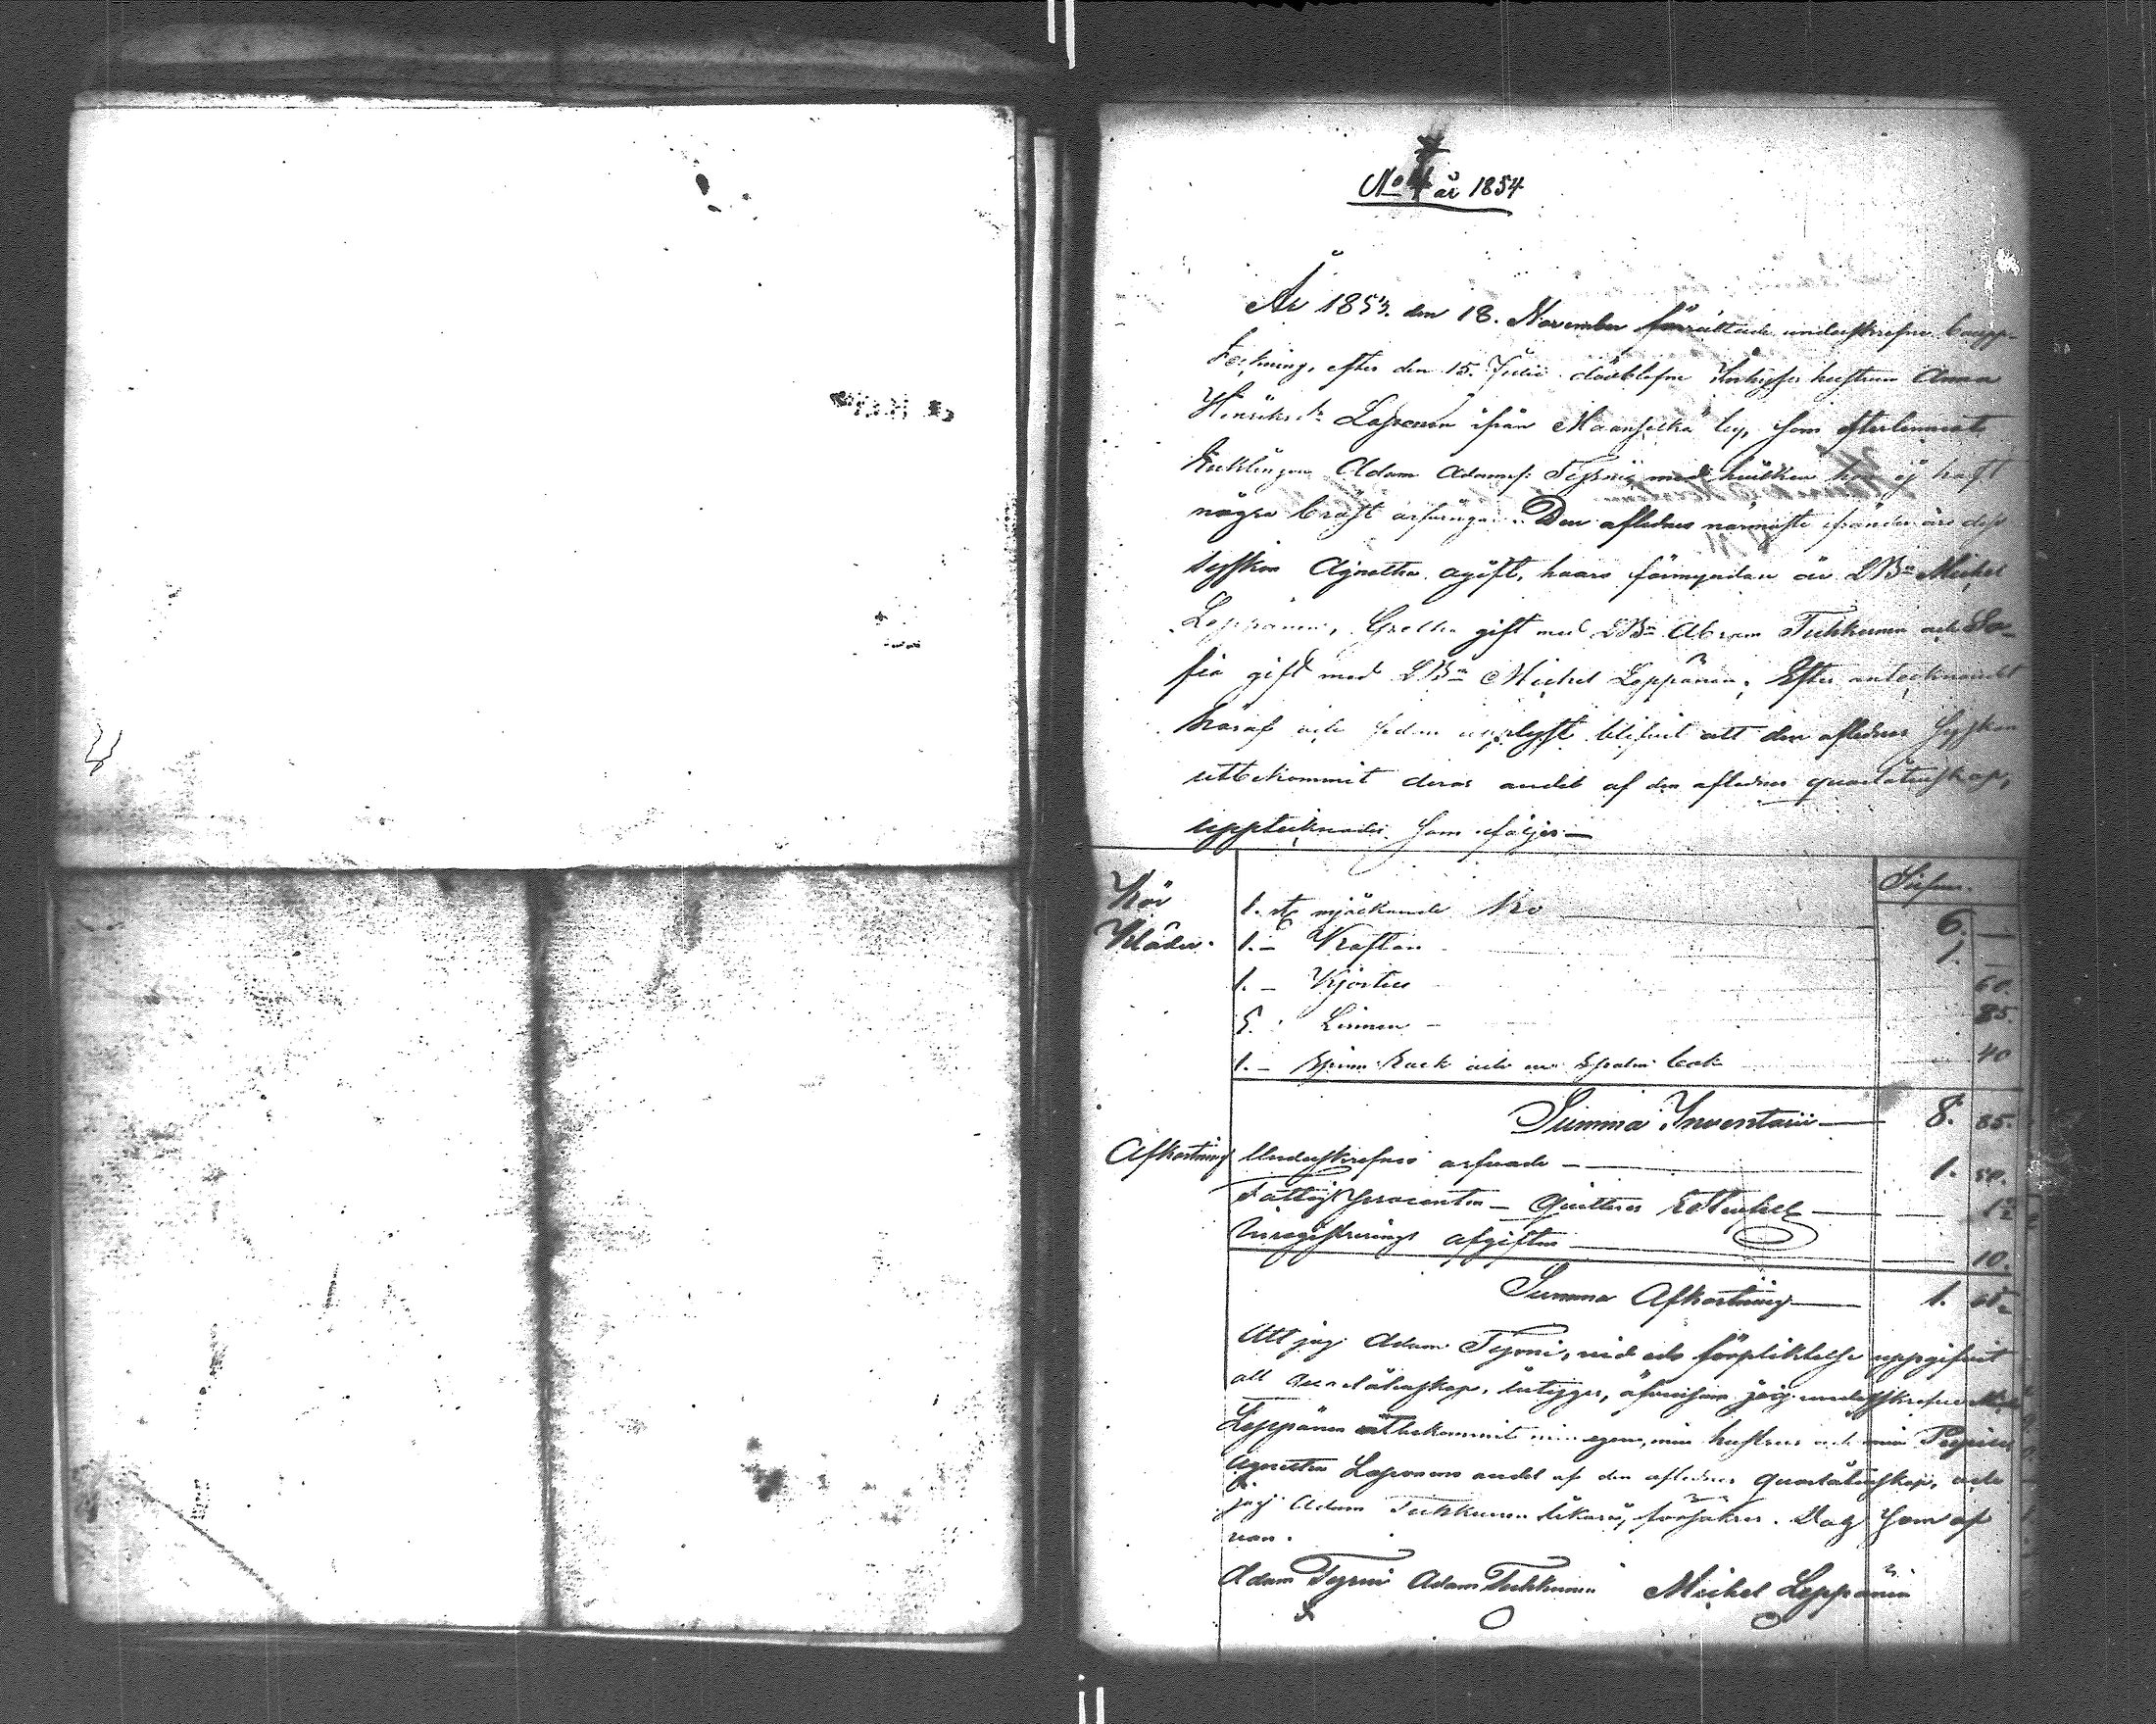 No 4 år 1854
År 1853. den 18. November förrättade underskrefne boupp-
teckning, efter den 15. Julii dödblefne Inhyses hustrun Anna
Henriksdr Laponen ifrån Maanselkä by, som efterlemnat
Enklingen Adam Adamss. Tyrni, med hvilken hon ej haft
några bröst arfvingar. Den aflednes närmaste fränder äro dess
syskon Agnetha ogift, hvars förmyndare är LBn Michel
Leppänen, Gretha gift med LBn Abram Tuhkunen och So-
fia gift med LBn Michel Leppänen. Efter antecknandet
häraf och sedan upplyst blifvit att den aflednes Syskon
utbekommit deras andel af den aflednes qvarlåtenskap,
upptecknades som följer —
Silfver.
Kör 1. st mjölkande Ko 6. —
Kläder. 1. – Kaftan 1. —
1. – Kjortel 60.
5. Linnen – 85.
1. – Spinn Rock och en Psalm bok 40
Summa Inventarii — 8. 85.
Afkortning Underskrefnes arfvode — 1. 50.
Fattig Procenten – Quitteras
Inregistrerings afgiften 10.
Summa Afkortning — 1.
Att jag Adam Tyrni, vid eds förpliktelse uppgifvit
all qvarlåtenskap, intygger, äfvensom jag underskrefne
Leppänen utbekommit min egen, min hustrus och min Pupills
Agnetha Laponens andel af den aflednes qvarlåtenskap, och
jag Adam Tuhkunen likaså, försäkrar. Dag som of
van.
Adam Tyrni Adam Tuhkunen Michel Leppänen